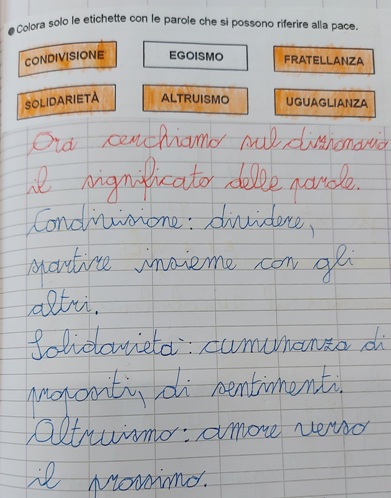 Colora solo le etichette con le parole che si possono riferire alla pace.
CONDIVISIONE EGOISMO FRATELLANZA
SOLIDARIETÀ ALTRUISMO UGUAGLIANZA
Ora cerchiamo sul dizionario
il significato delle parole.
Condivisione: dividere,
spartire insieme con gli
altri.
Solidarietà: cumunanza di
propositi, di sentimenti.
Altruismo: amore verso
il prossimo.